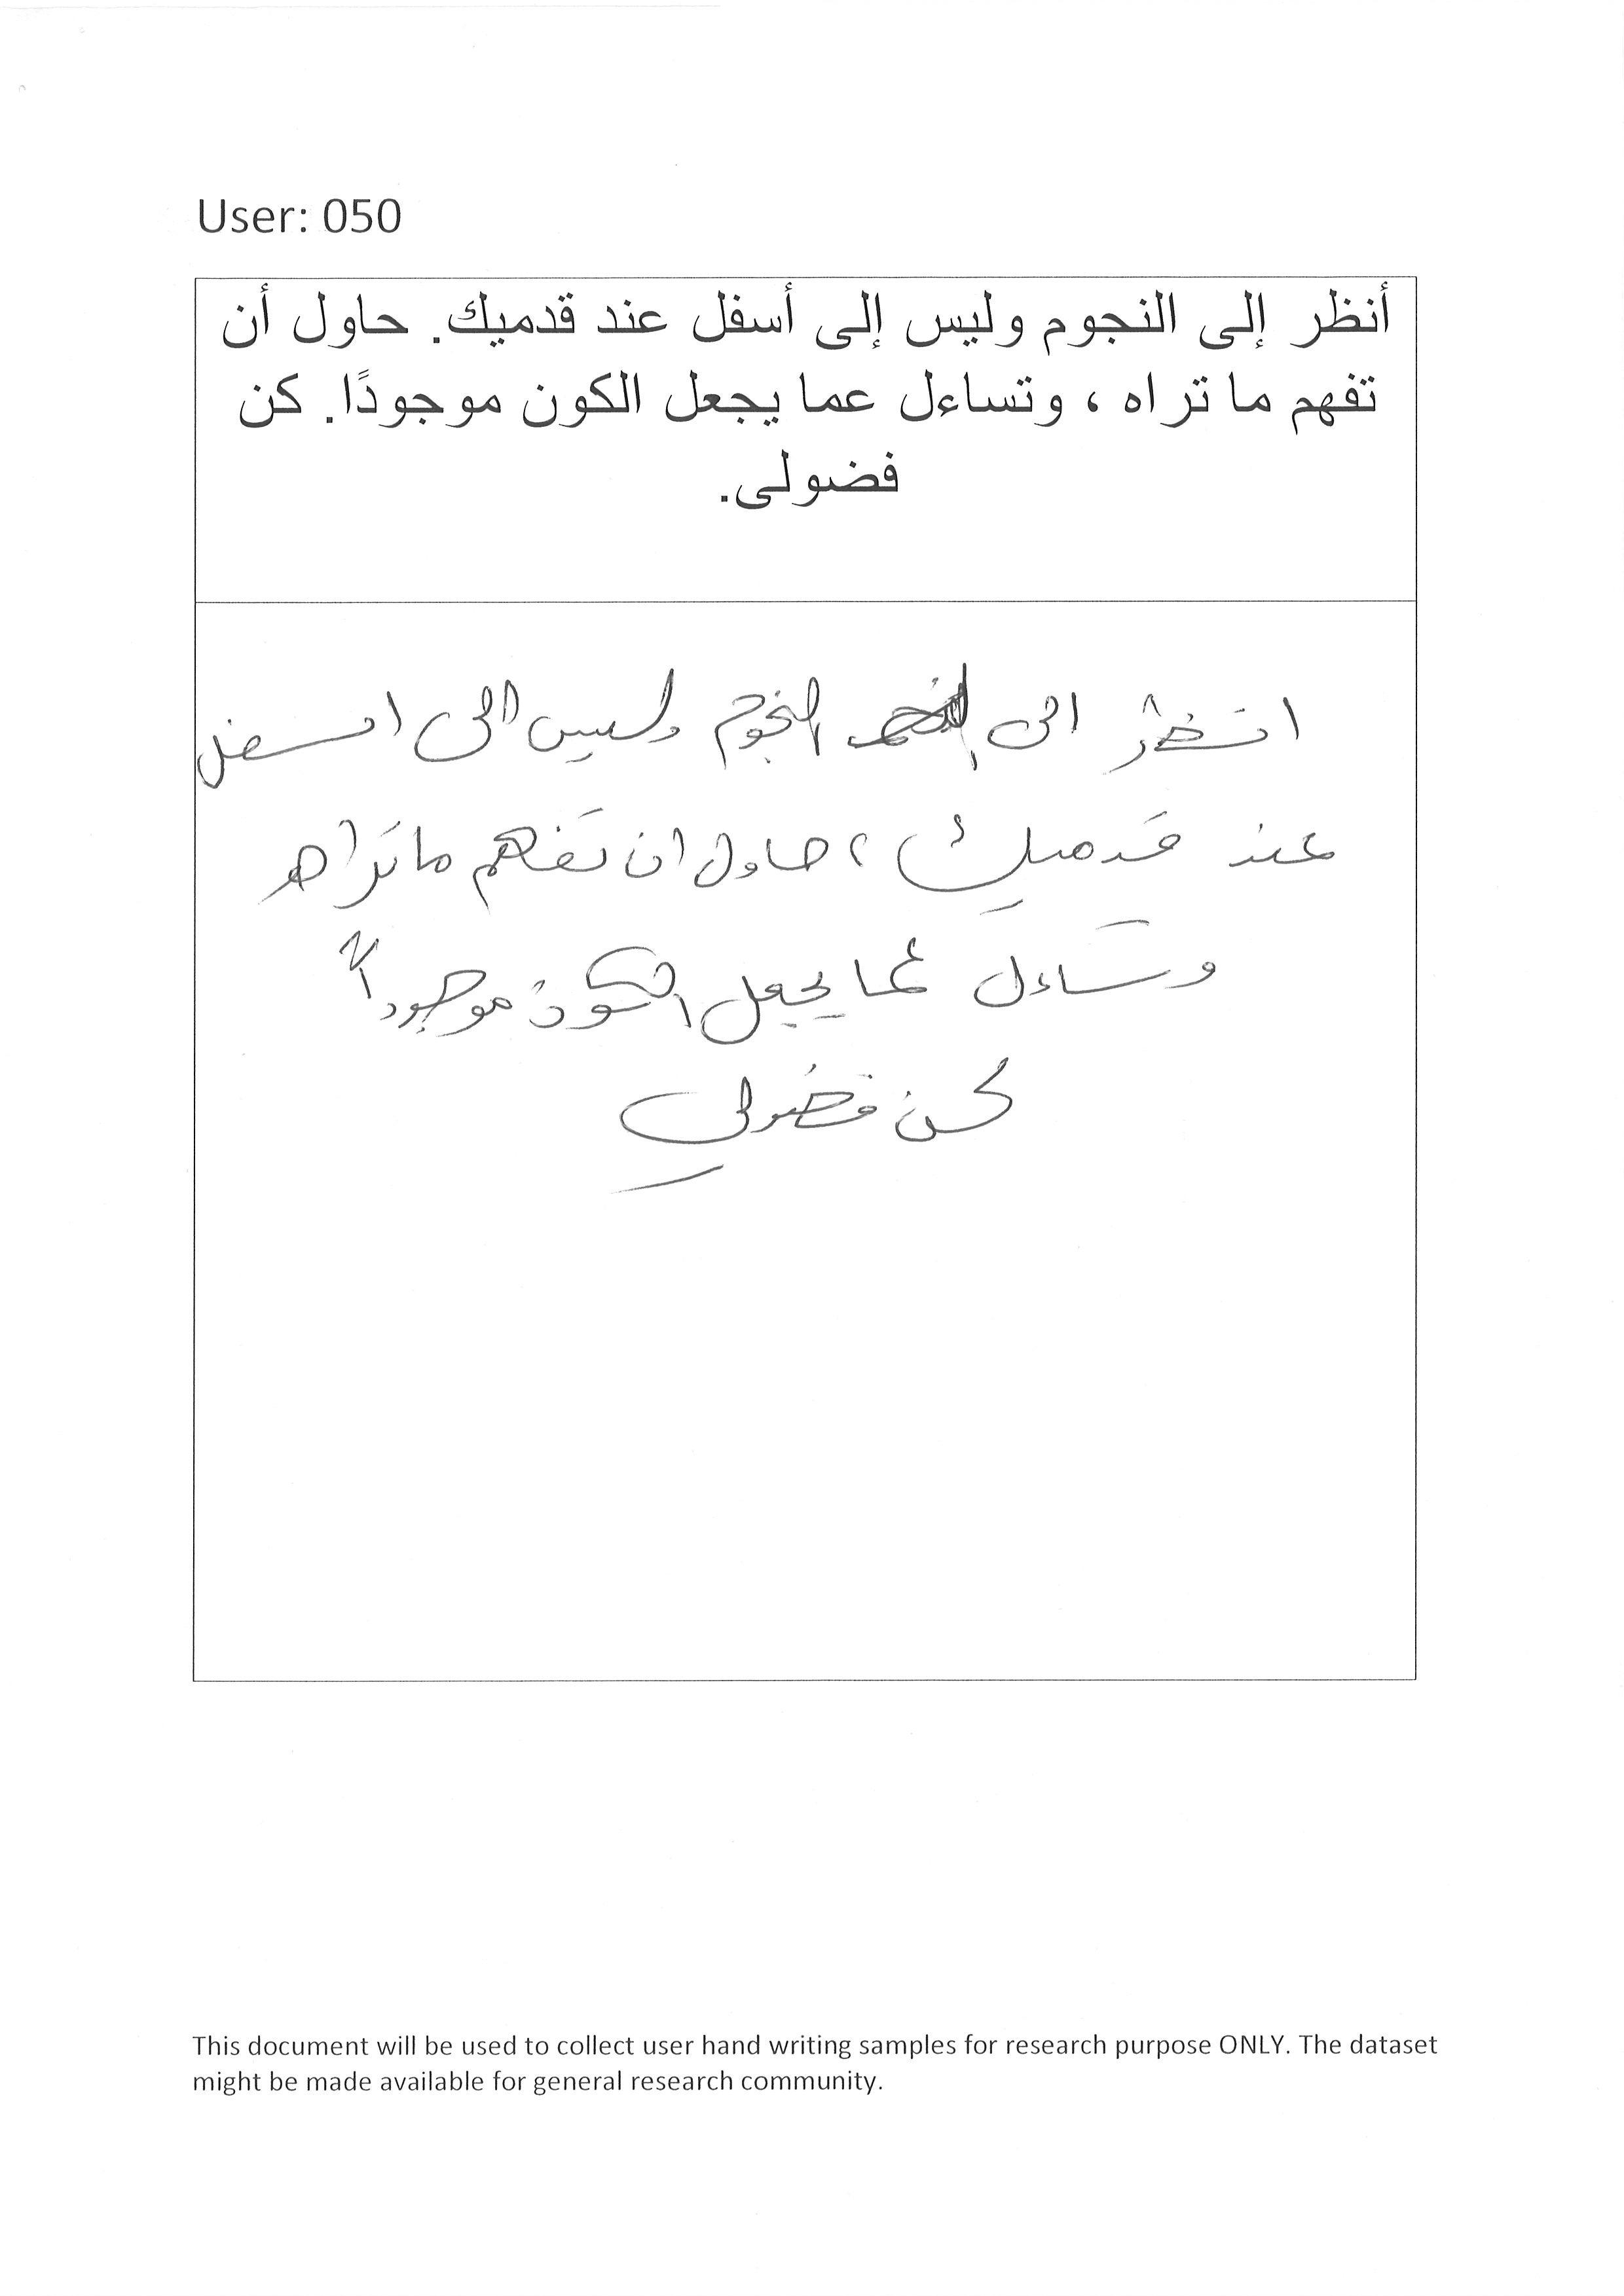 User: 050
أنظر إلى النجوم وليس إلى أسفل عند قدميك. حاول أن
تفهم ما تراه ، وتساءل عما يجعل الكون موجودًا. كن
فضولى.
انتظر الى النجوم وليس الى اسفل
عند قدميك ، حاول ان تفهم ما تراه
وتساءل عما يجعل الكون موجوداً
كن فضولي
This document will be used to collect user hand writing samples for research purpose ONLY. The dataset
might be made available for general research community.